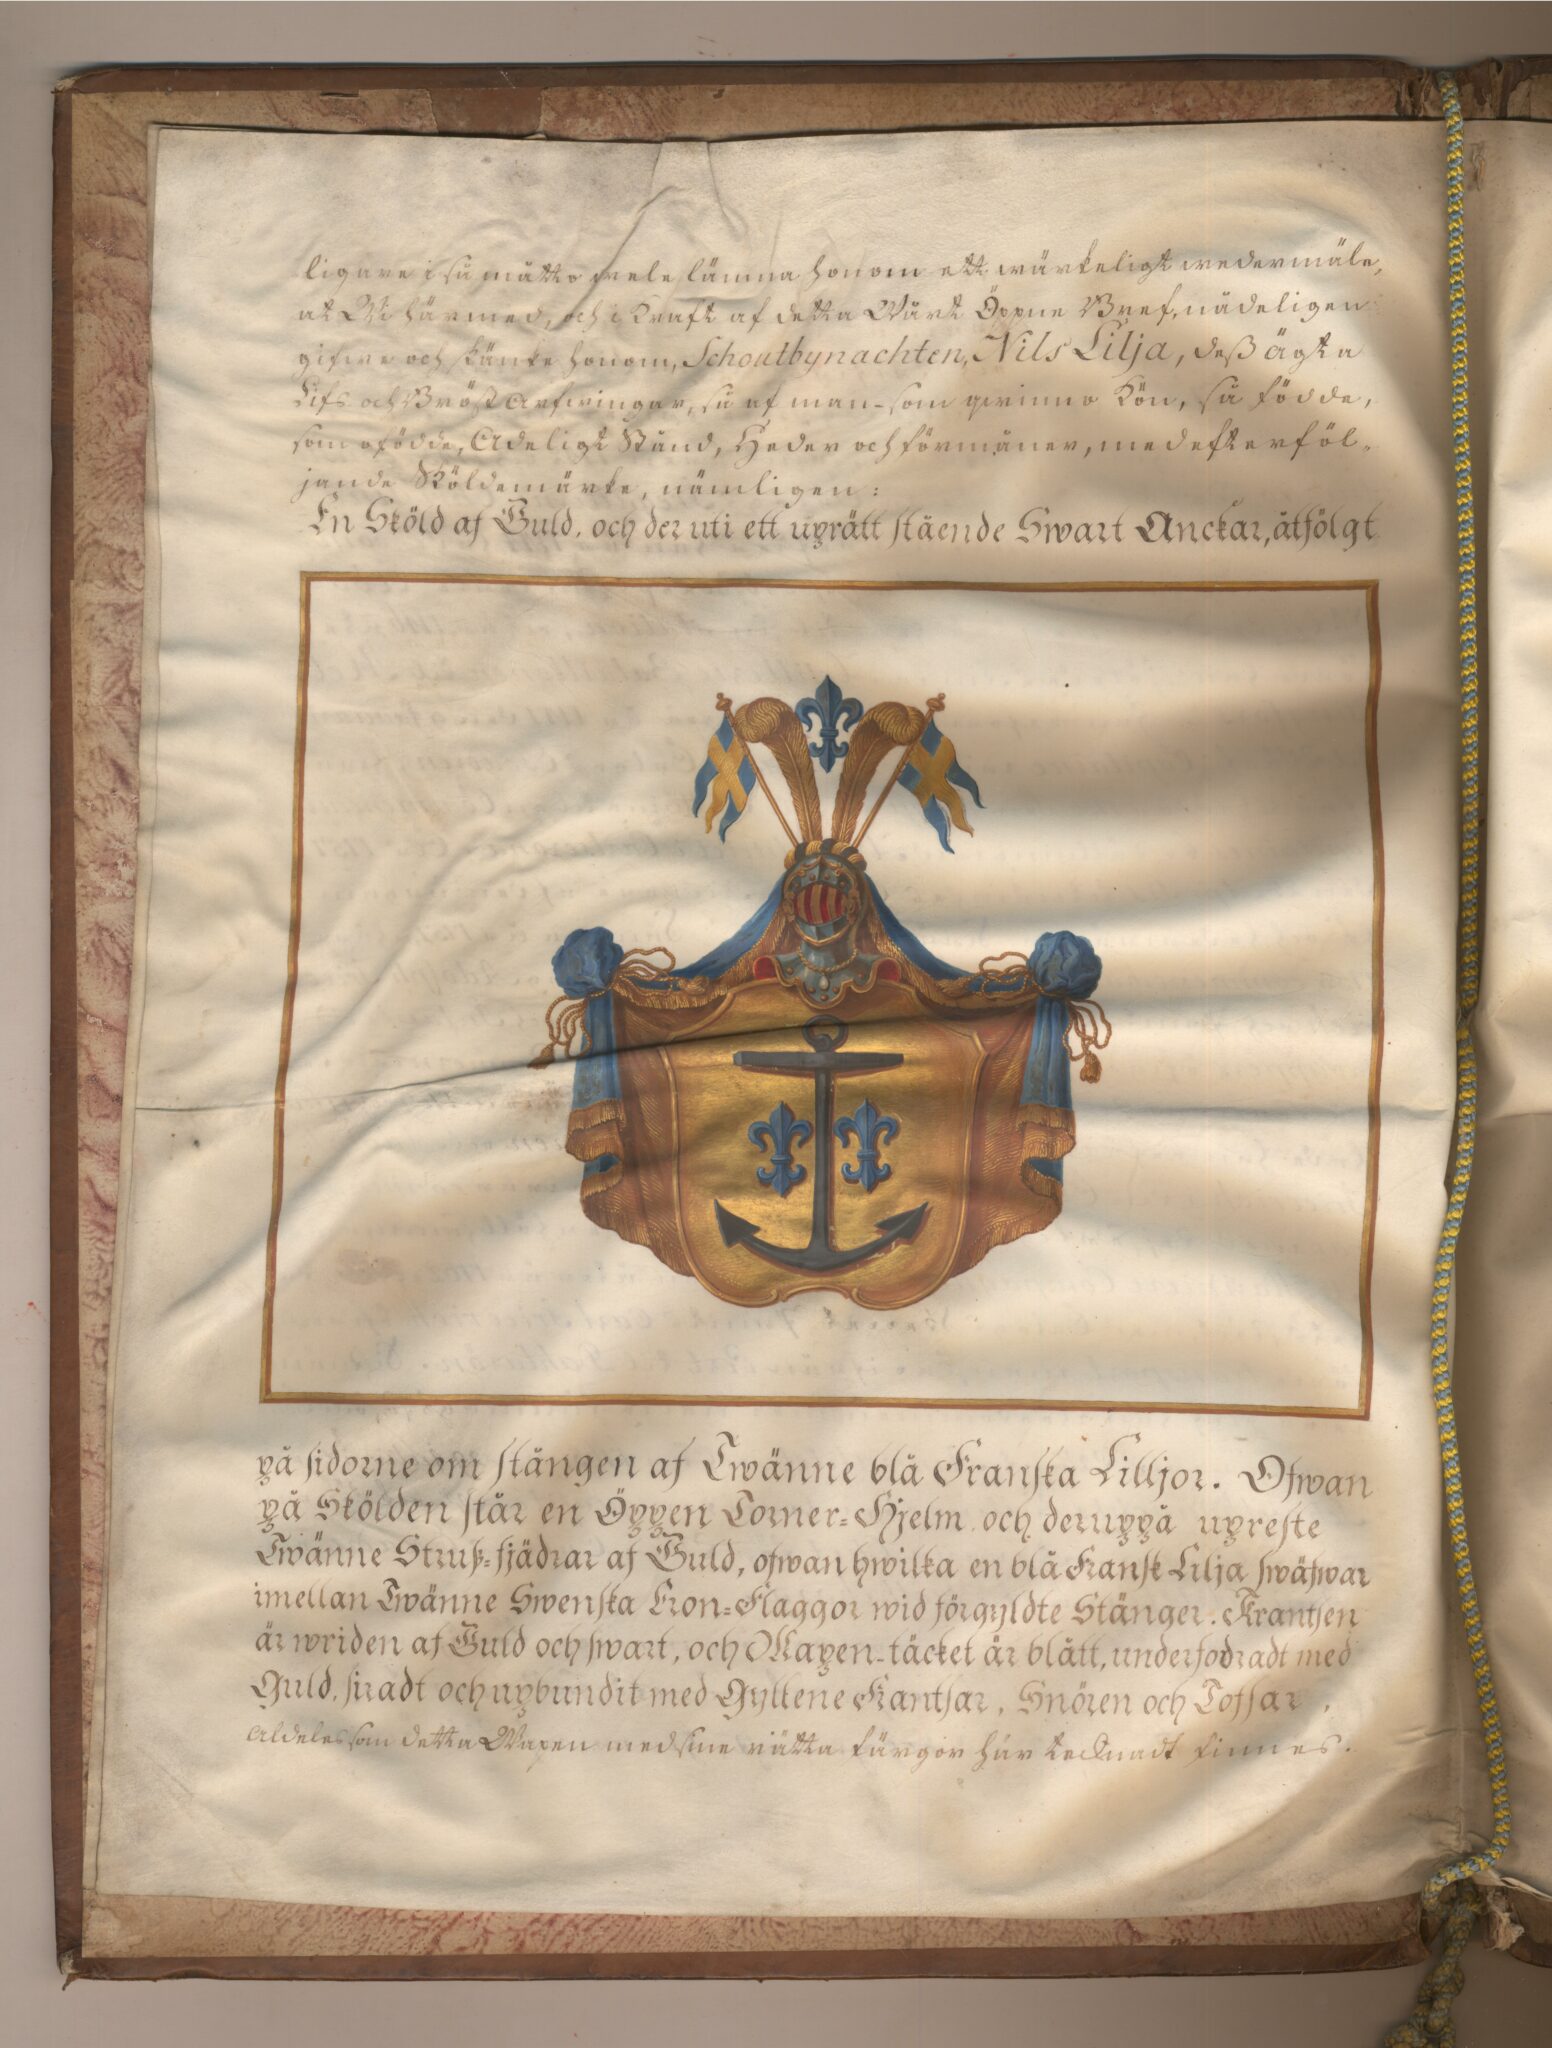 ligare i så måtto wele lämna honom ett wärkeligt wedermäle,
at Wi härmed, och i kraft af detta Wårt Öppne Bref, nådeligen
gifwe och skänke honom, Schoutbynachten, Nils Lilja, deß ägta
Lifs och Bröst Arfwingar, så af man- som qwinno Kön, så födde,
som ofödde, Adeligt Stånd, Heder och förmåner, med efterföl-
jande Sköldemärke, nämligen:
En Sköld af Guld, och der uti ett uprätt stående Swart Anckar, åtfölgt
på sidorne om stången af Twänne blå Franska Lilljor. Ofwan
på Skölden står en Öppen Torner-Hjelm och deruppå upreste
Twänne Struß-fjädrar af Guld, ofwan hwilka en blå Fransk Lilja swäfwar
imellan Twänne Swenska Kron-Flaggor wid förgyldte Stänger. Krantsen
är wriden af Guld och swart, och Wapen-täcket är blått, underfodradt med
Guld, siradt och upbundit med Gyllene Frantsar, Snören och Tofsar,
Aldeles som detta Wapen med sine rätta färgor här tecknadt finnes.